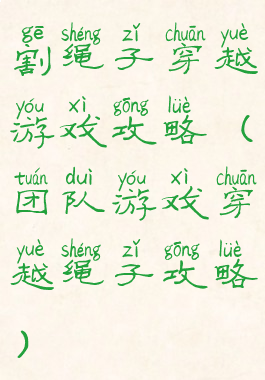 gē shéng zǐ chuān yuè
割绳子穿越
yóu xì gōng lüè
游戏攻略（
tuán duì yóu xì chuān
团队游戏穿
yuè shéng zǐ gōng lüè
越绳子攻略
）